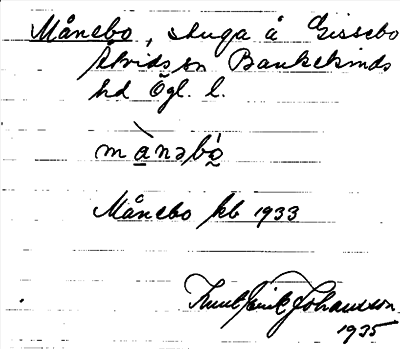 Månebo, stuga å Gissebo
Åtvids sn Bankekinds
hd Ögl. l.
mànəbó̤
Månebo kb 1933
Knut Erik Johansson
1935